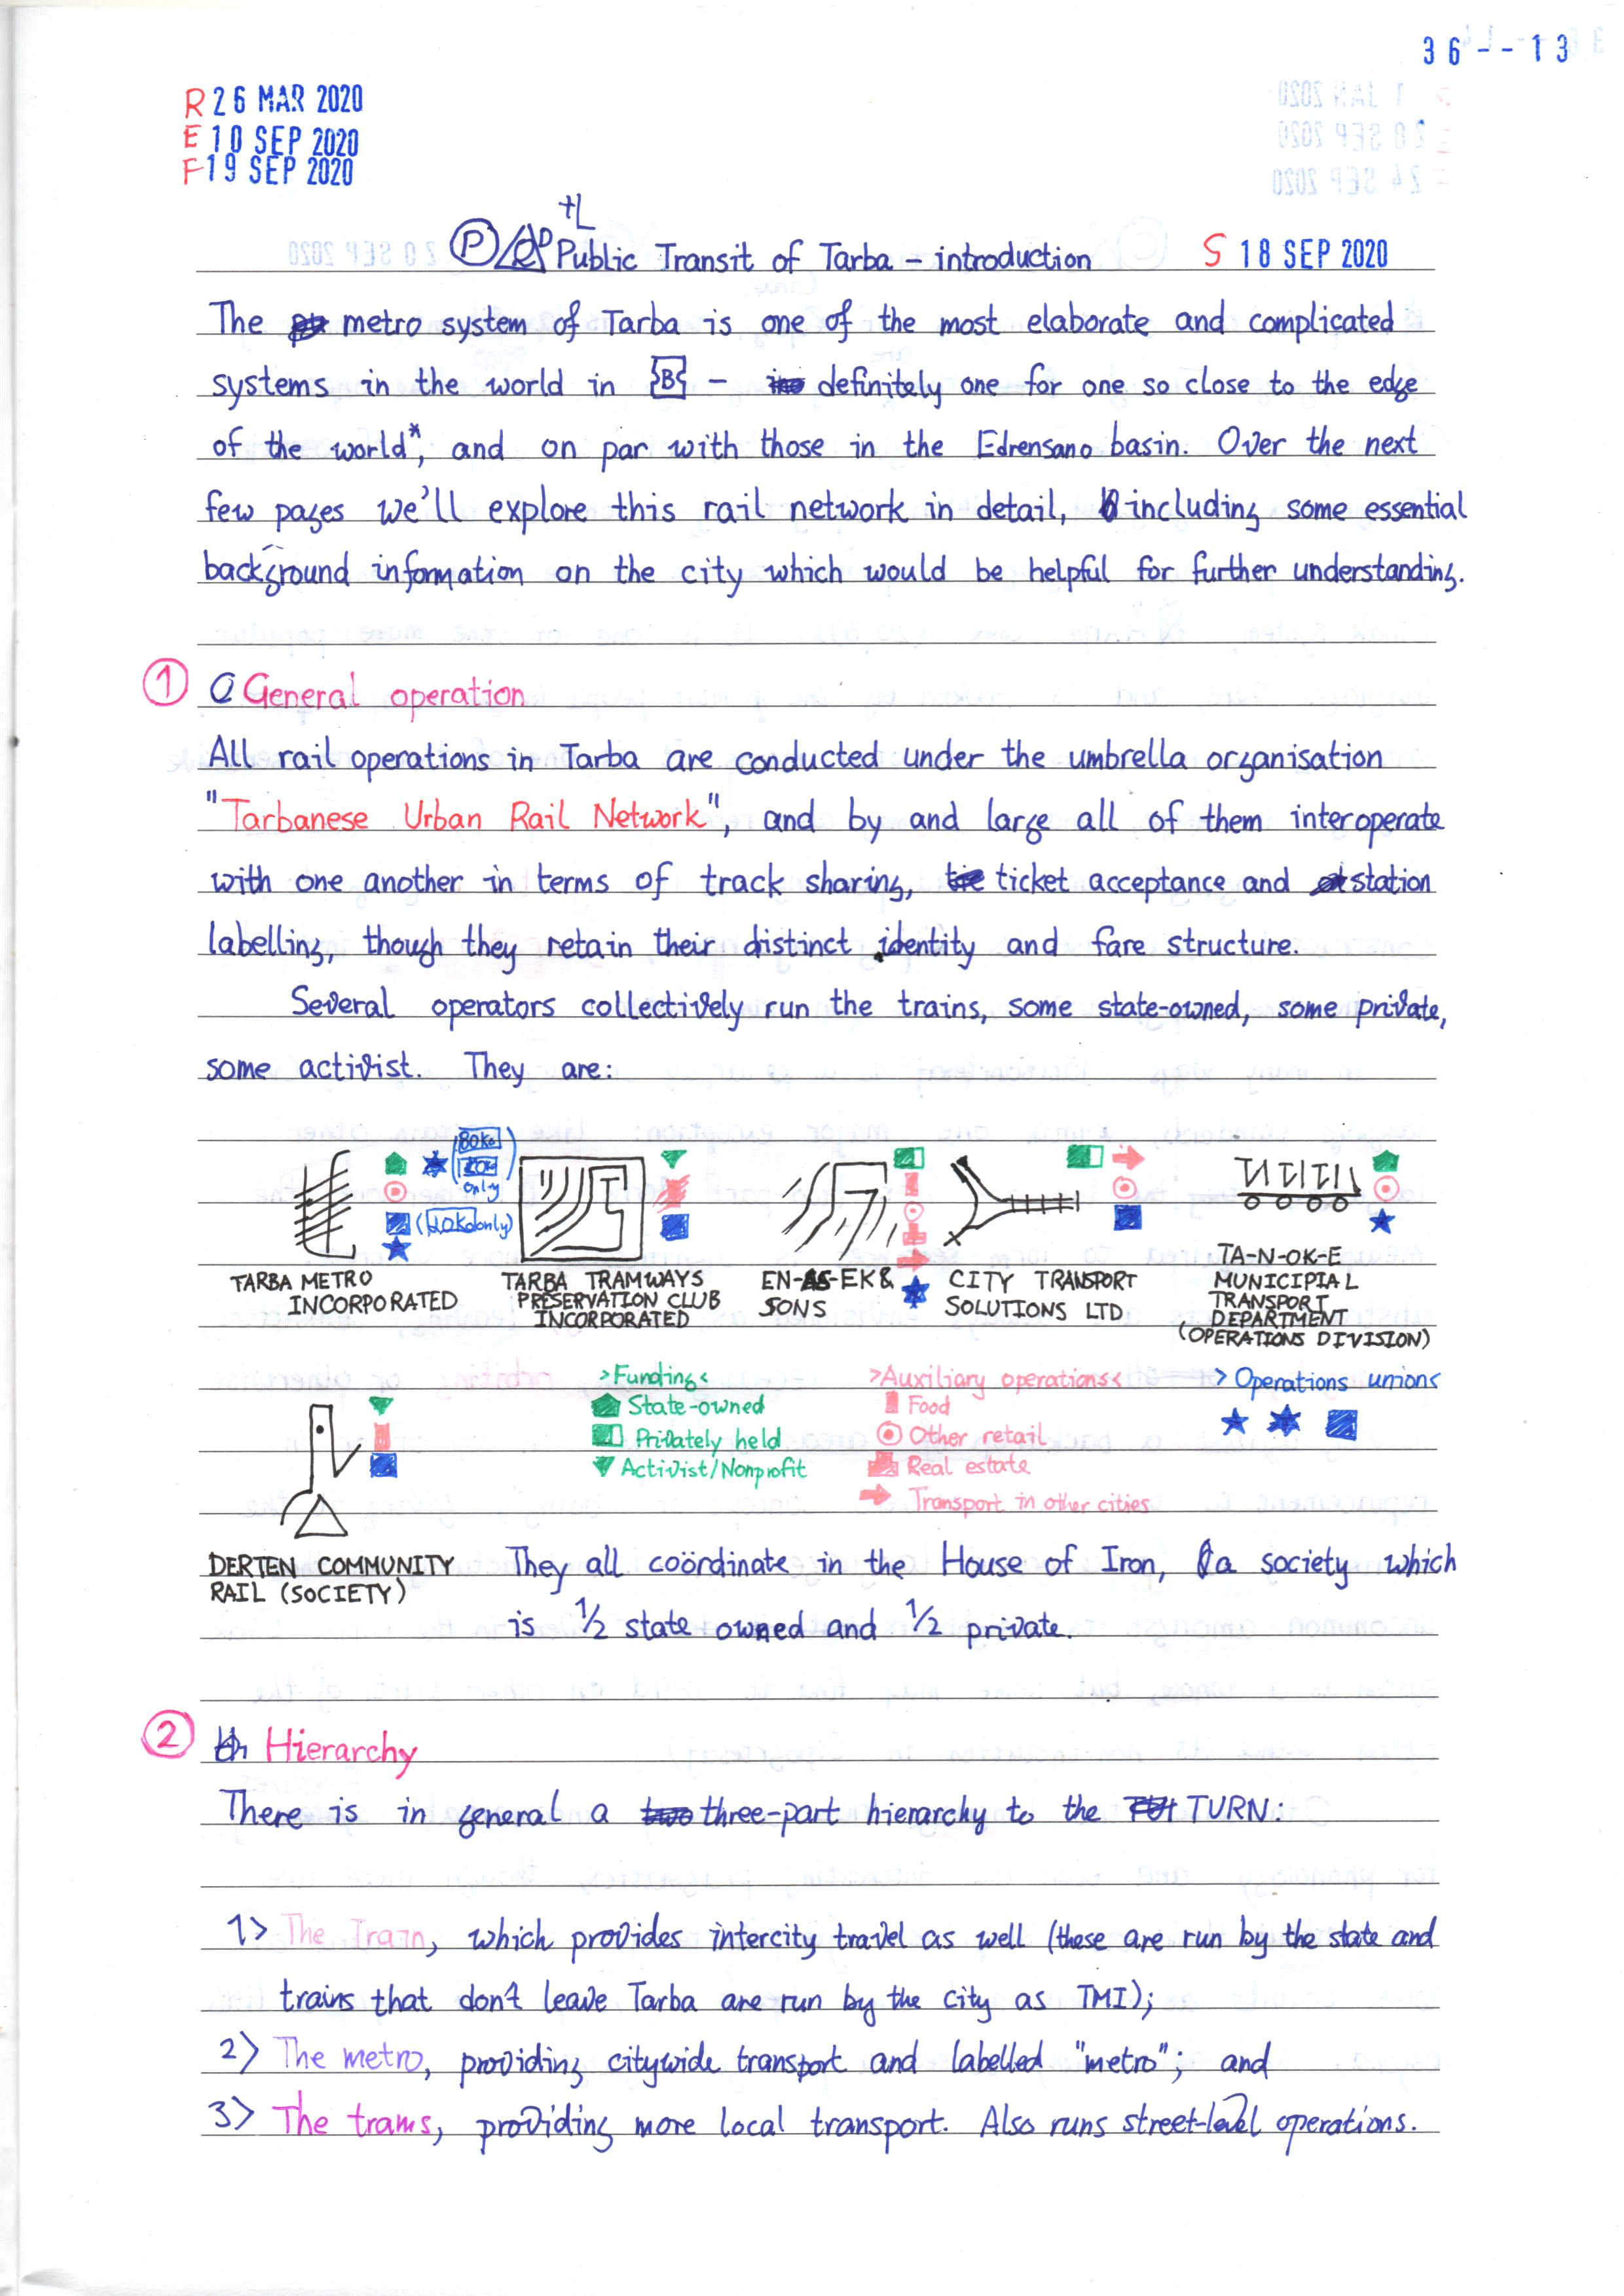 36--13
R 26 MAR 2020
E 10 SEP 2020
F 19 SEP 2020
+L
P Public Transit of Tarba – introduction S 18 SEP 2020
The metro system of Tarba is one of the most elaborate and complicated
systems in the world in {B} – definitely one for one so close to the edge
of the world*, and on par with those in the Edrensano basin. Over the next
few pages we'll explore this rail network in detail, including some essential
background information on the city which would be helpful for further understanding.
1 General operation
All rail operations in Tarba are conducted under the umbrella organisation
"Tarbanese Urban Rail Network", and by and large all of them interoperate
with one another in terms of track sharing, ticket acceptance and station
labelling, though they retain their distinct identity and fare structure.
Several operators collectively run the trains, some state-owned, some private,
some activist. They are:
only
only)
TARBA METRO
INCORPORATED
TARBA TRAMWAYS
PRESERVATION CLUB
INCORPORATED
EN-AS-EK &
SONS
CITY TRANSPORT
SOLUTIONS LTD
TA-N-OK-E
MUNICIPIAL
TRANSPORT
DEPARTMENT
(OPERATIONS DIVISION)
>Funding<
State-owned
Privately held
Activist/Nonprofit
>Auxiliary operations<
Food
Other retail
Real estate
Transport in other cities
> Operations unions
DERTEN COMMUNITY
RAIL (SOCIETY)
They all coördinate in the House of Iron, a society which
is 1/2 state owned and 1/2 private.
2 Hierarchy
There is in general a three-part hierarchy to the TURN:
1> The Train, which provides intercity travel as well (these are run by the state and
trains that don't leave Tarba are run by the city as TMI);
2> The metro, providing citywide transport and labelled "metro"; and
3> The trams, providing more local transport. Also runs street-level operations.